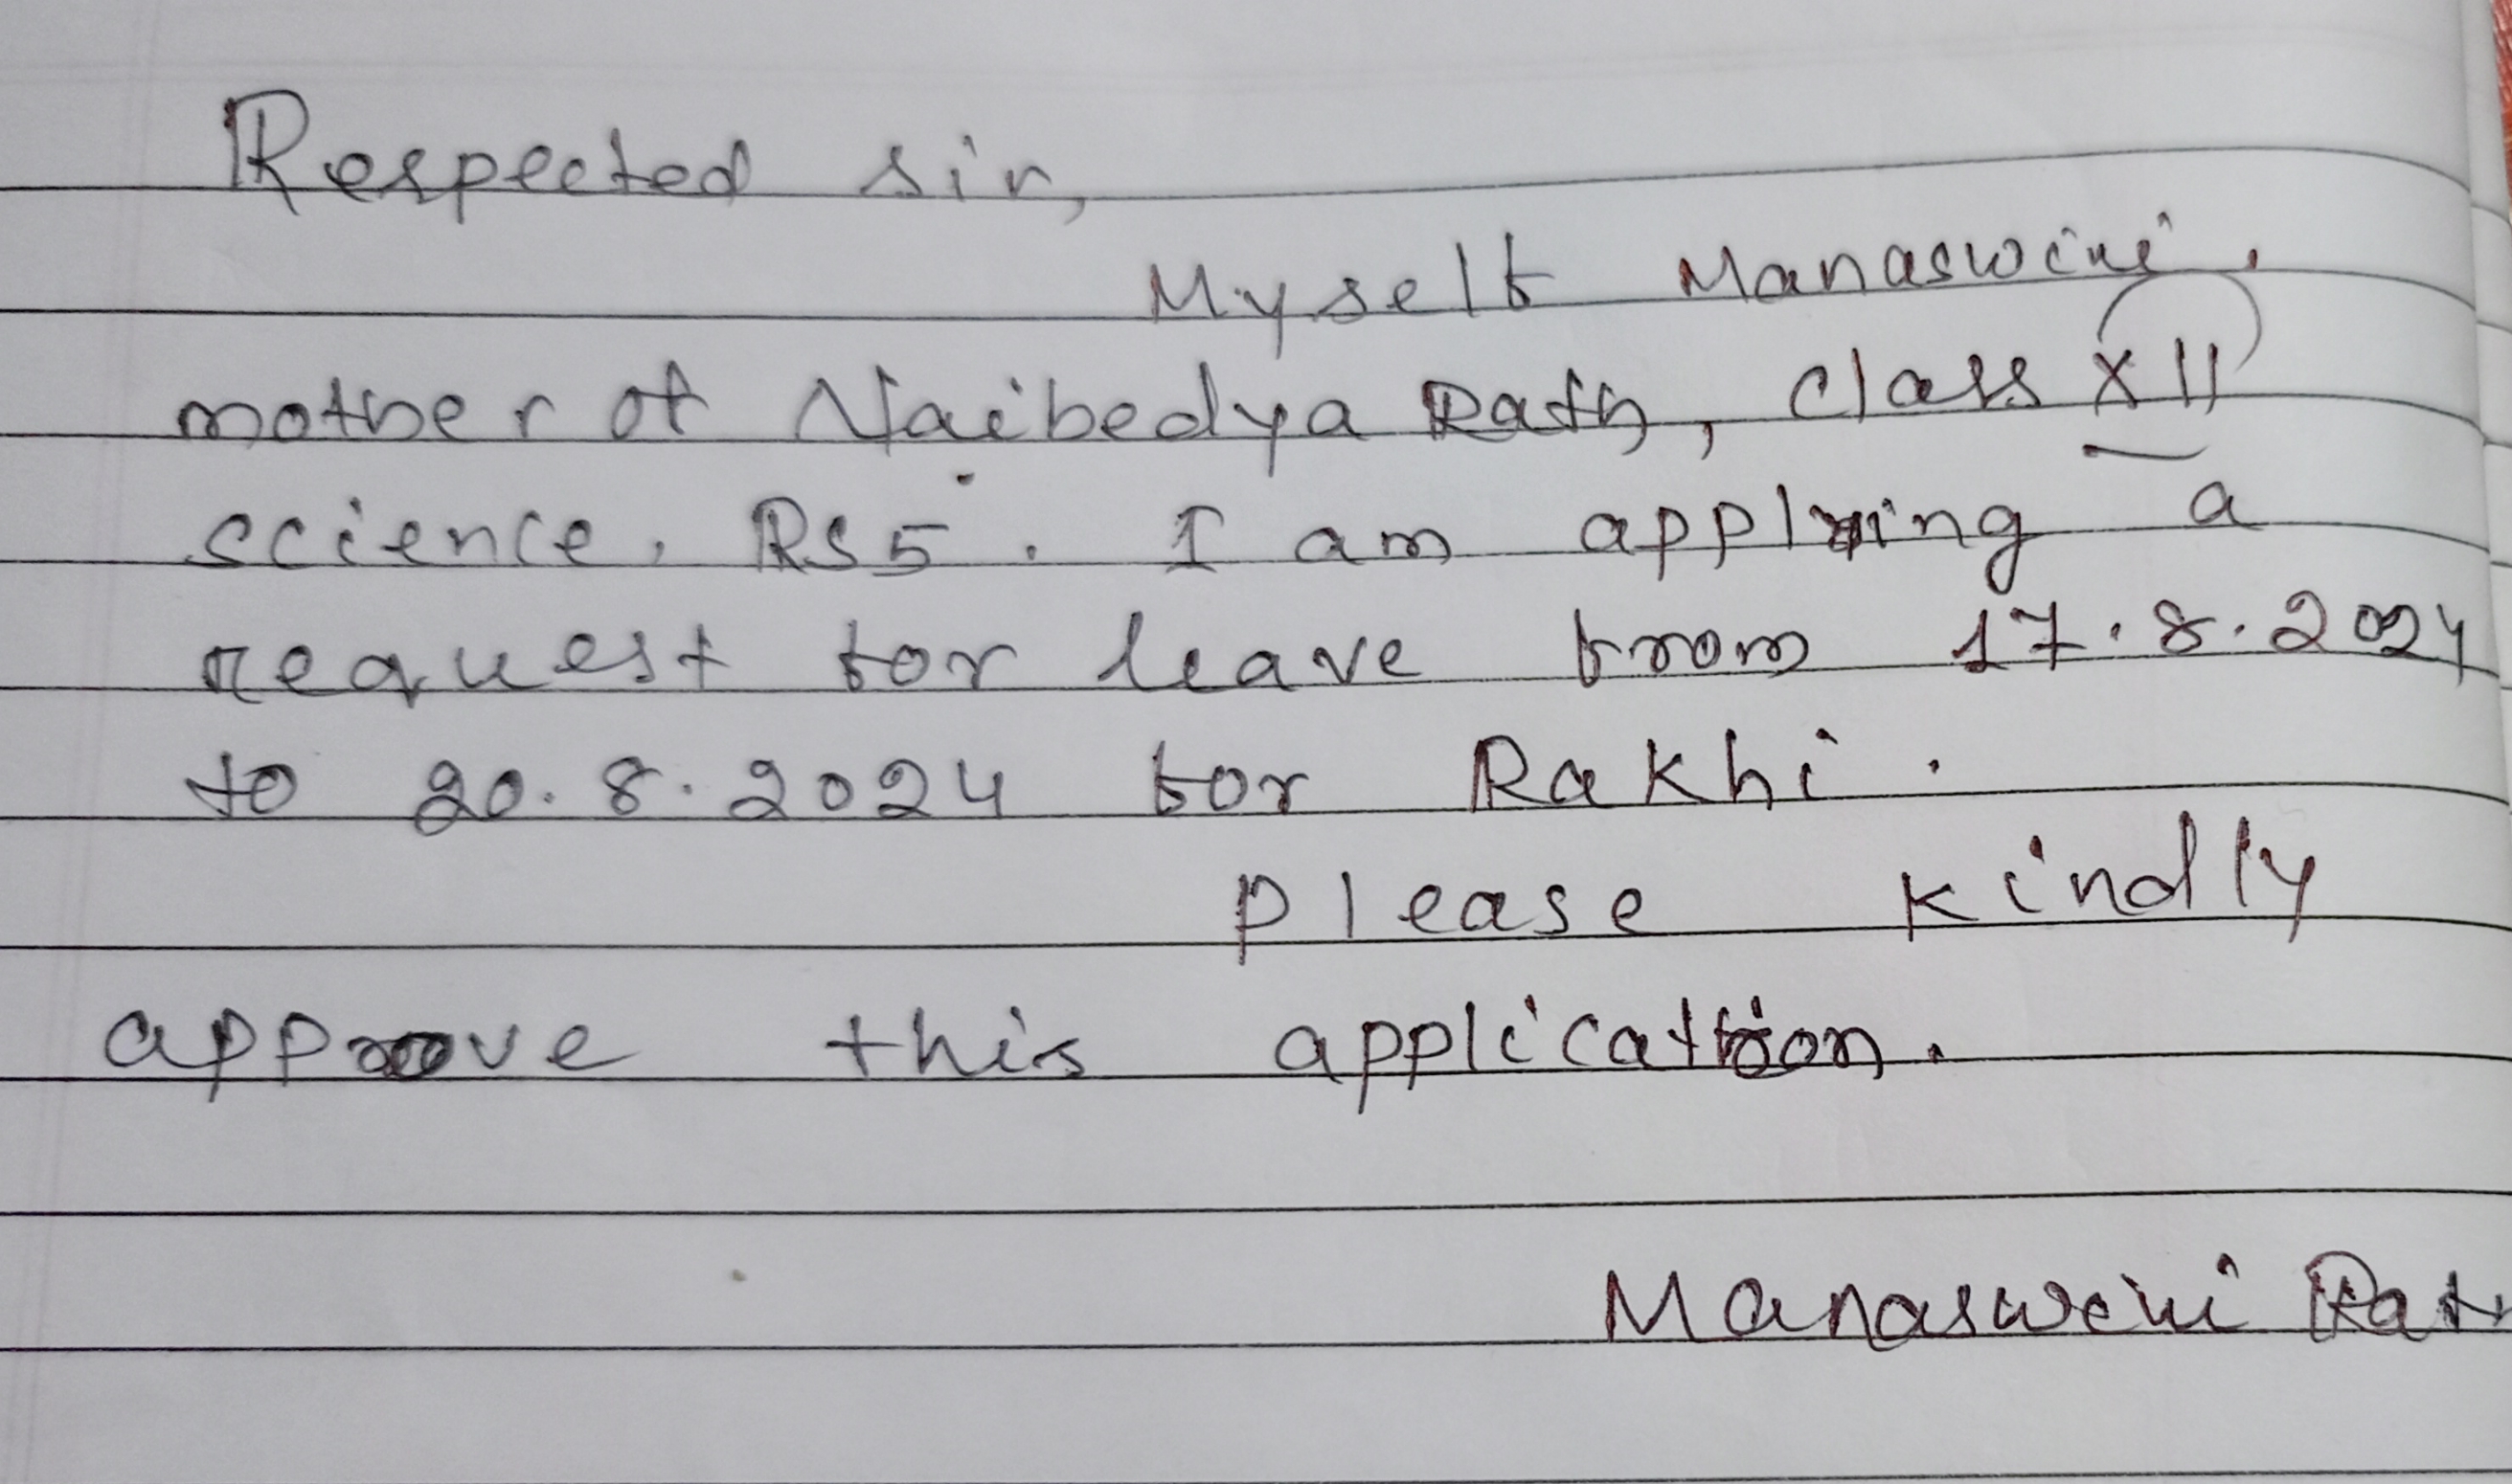 Respected sir,
Myself Manaswini.
mother of Naibedya Rath, Class XII
science, RS5. I am applying a
request for leave from 17.8.2024
to 20.8.2024 for Rakhi.
please kindly
approve this application.
Manaswini Rath